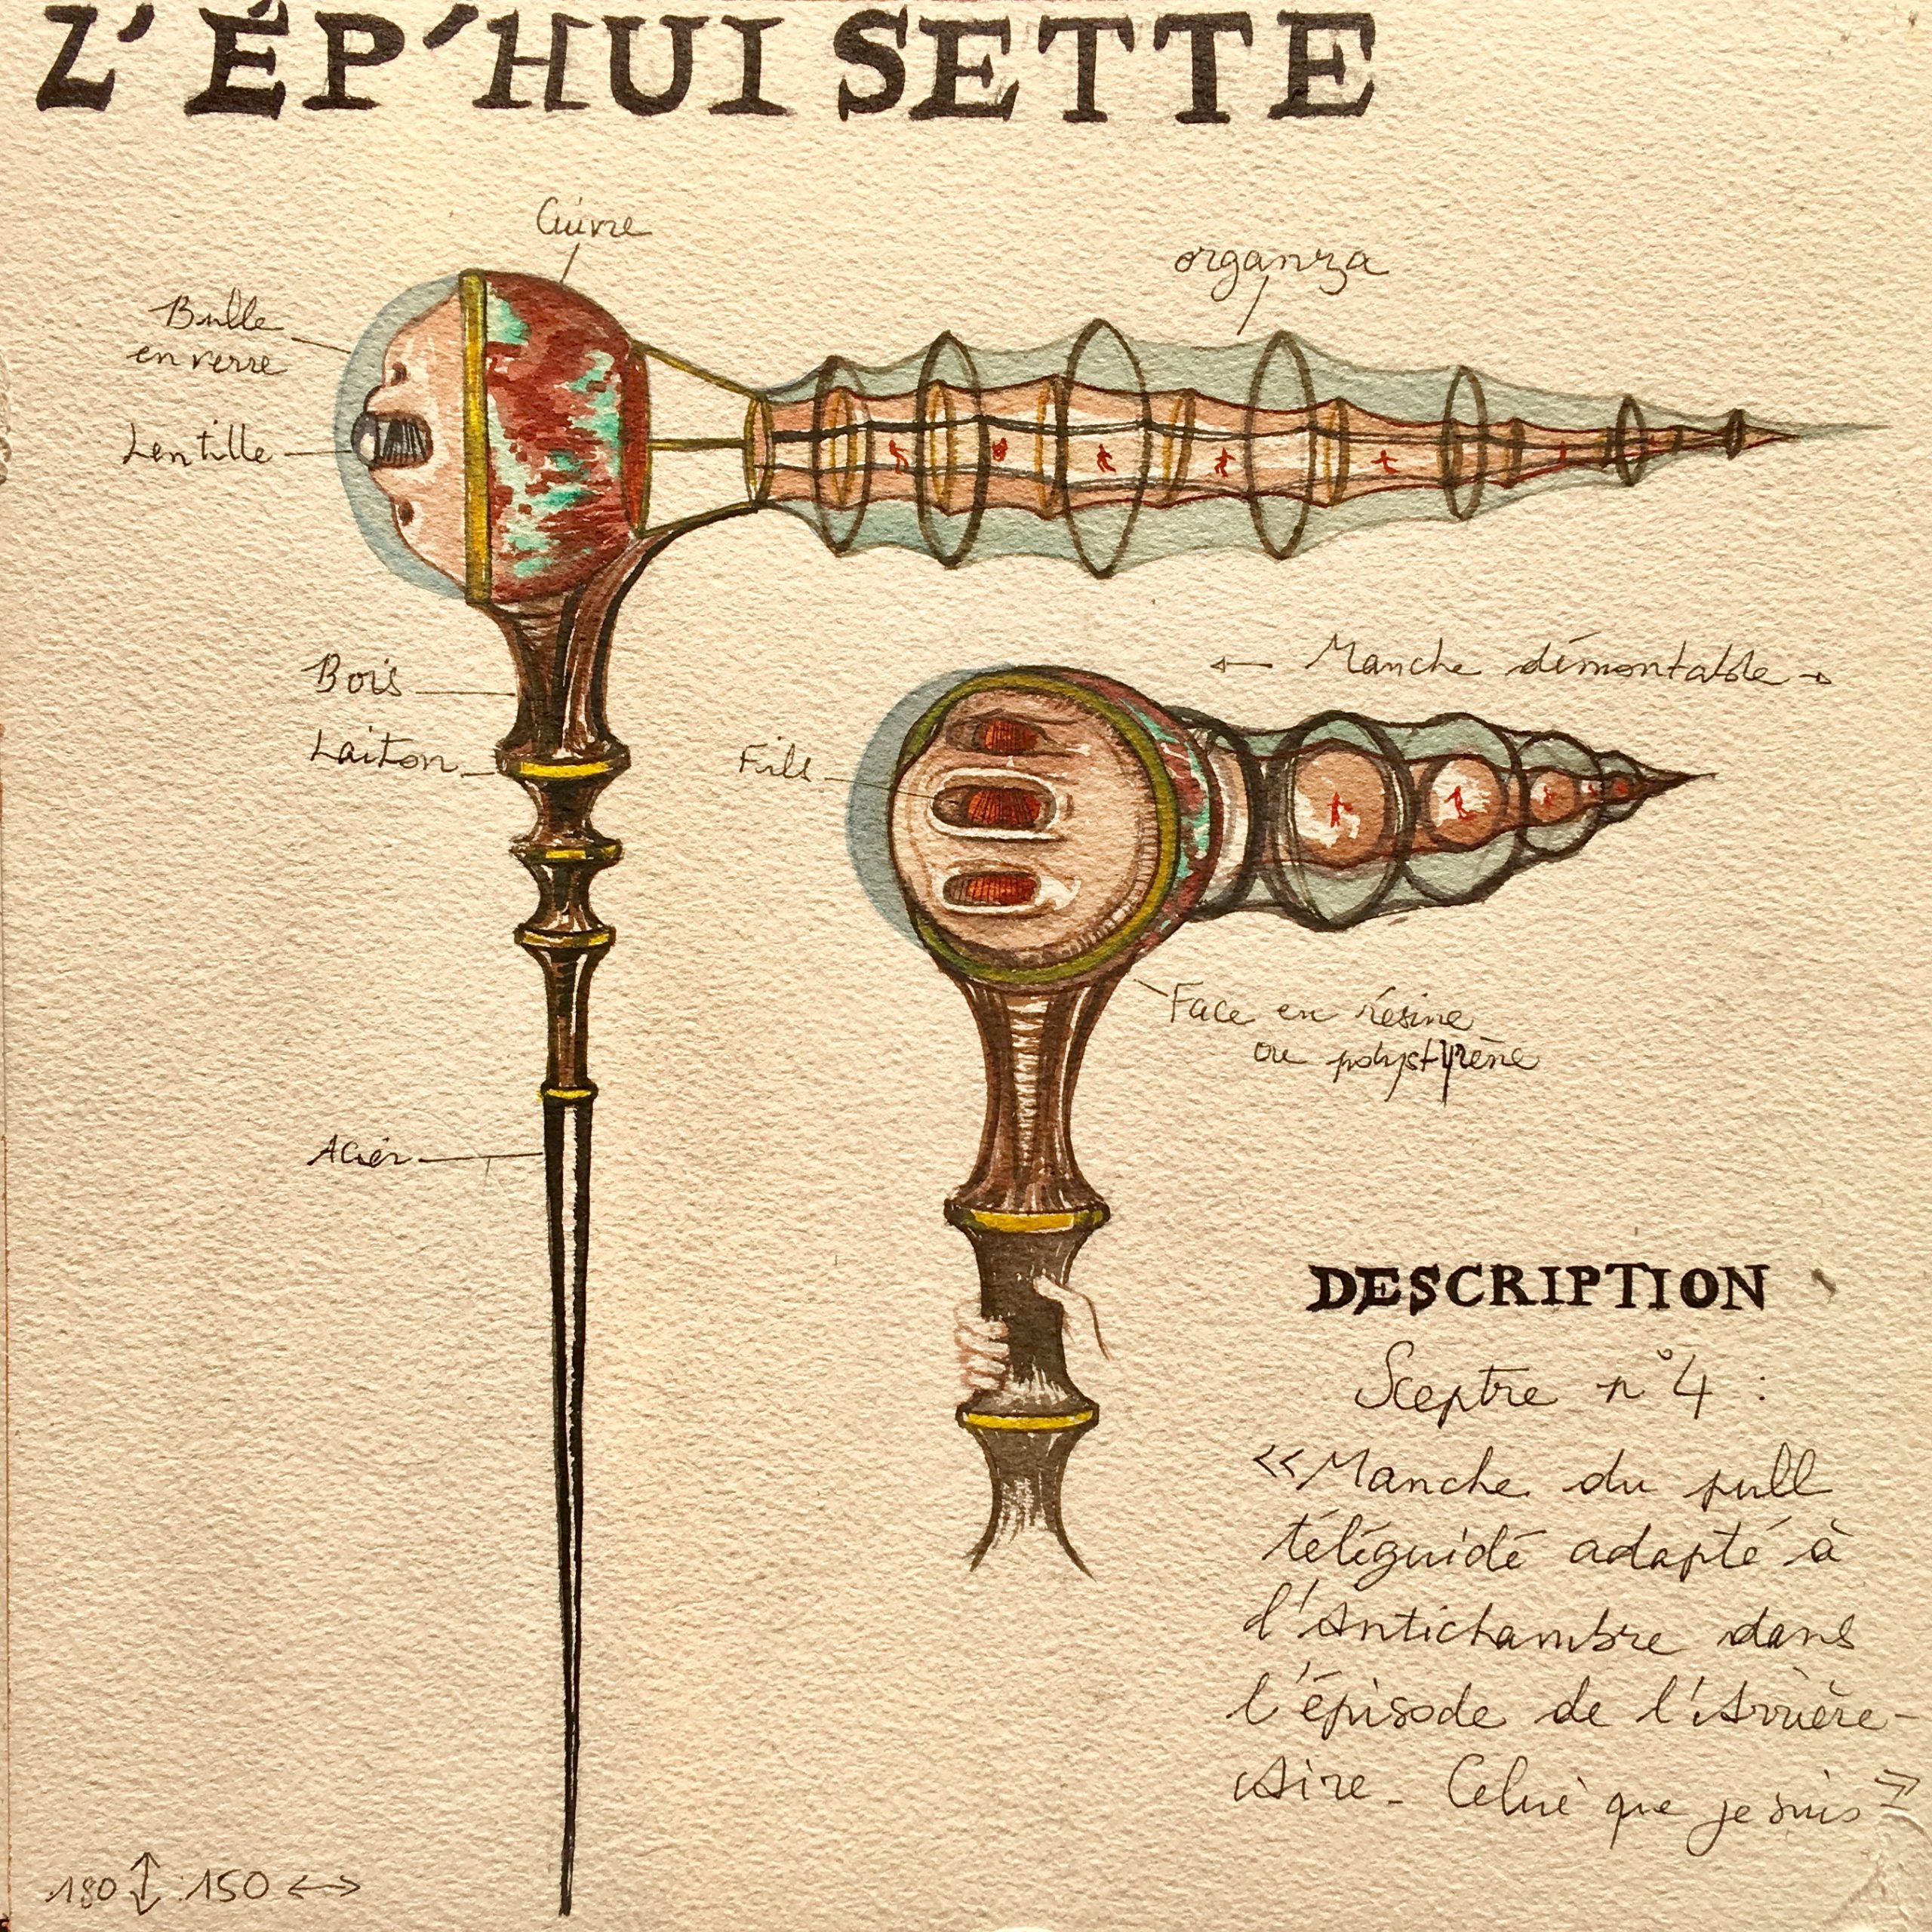 Z'ÉP'HUI SETTE
Cuivre
organza
Bulle
en verre
Lentille
Bois
← Manche démontable →
Laiton
Fils
Face en résine
ou polystyrène
Acier
DESCRIPTION
Sceptre n°4 :
<<Manche du pull
téléguidé adapté à
l'Antichambre dans
l'épisode de l'Arrière-
Aire_ Celui que je suis>>
180 ↕ 150 ↔